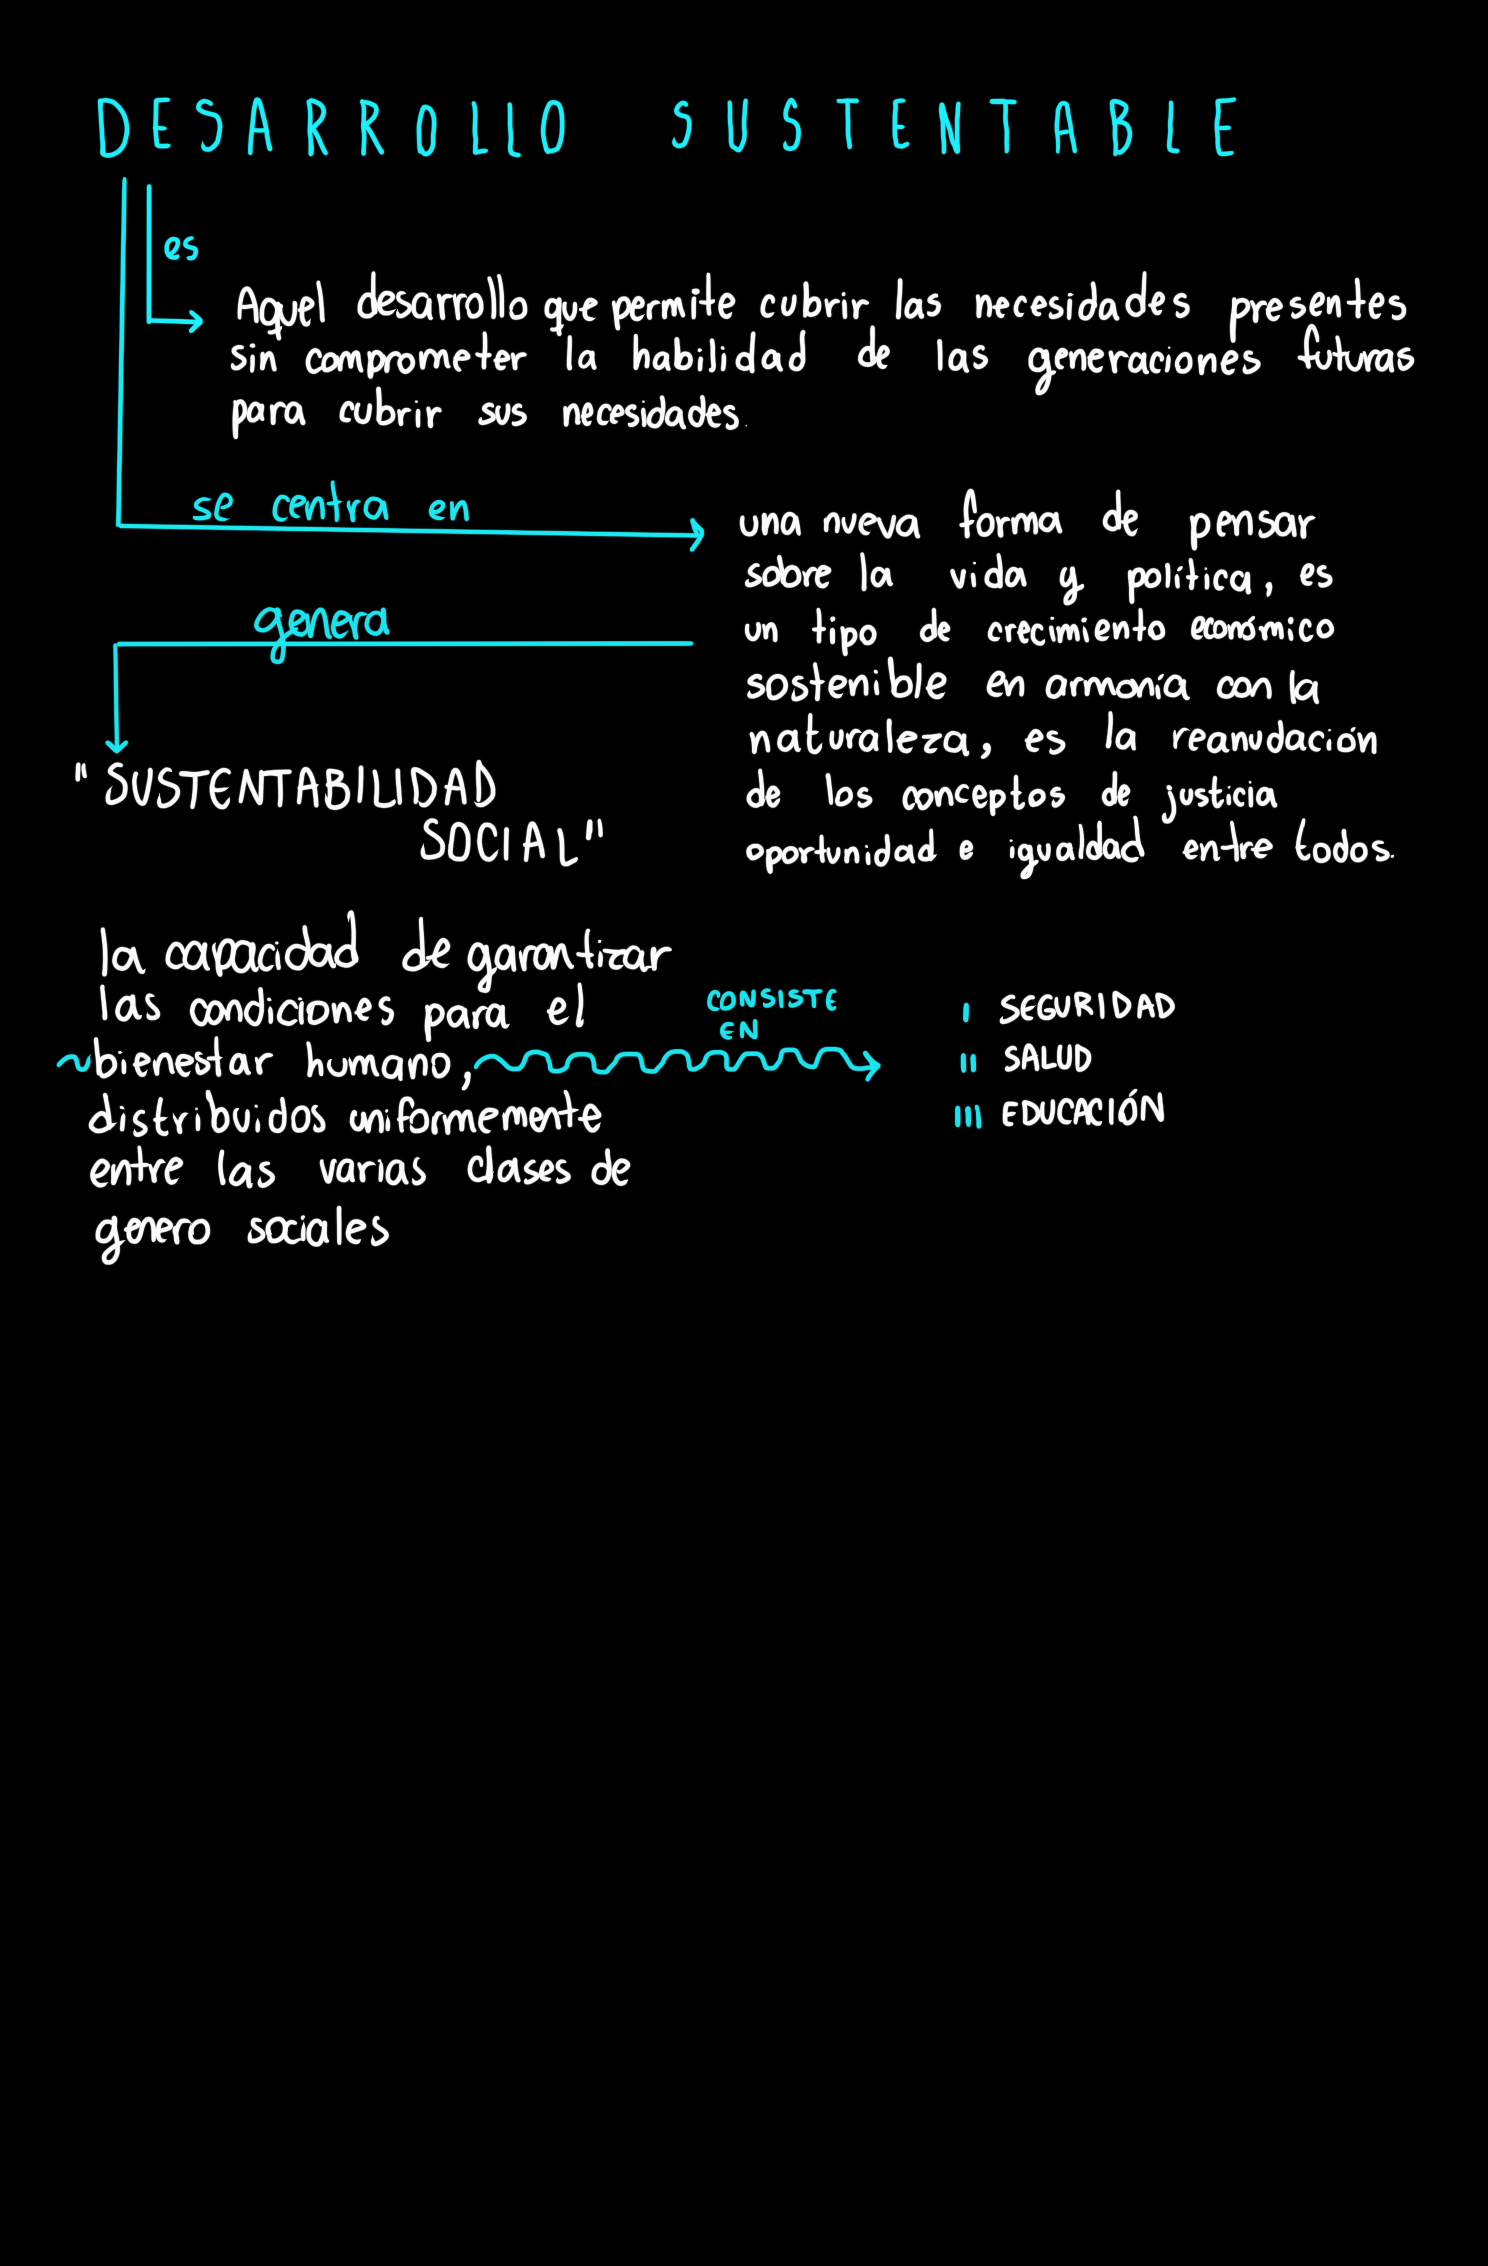 DESARROLLO SUSTENTABLE
es
Aquel desarrollo que permite cubrir las necesidades presentes
sin comprometer la habilidad de las generaciones futuras
para cubrir sus necesidades.
se centra en
una nueva forma de pensar
sobre la vida y política, es
un tipo de crecimiento económico
sostenible en armonía con la
naturaleza, es la reanudación
de los conceptos de justicia
oportunidad e igualdad entre todos.
genera
"SUSTENTABILIDAD
SOCIAL"
la capacidad de garantizar
las condiciones para el
bienestar humano,
distribuidos uniformemente
entre las varias clases de
genero sociales
CONSISTE
EN
I SEGURIDAD
II SALUD
III EDUCACIÓN